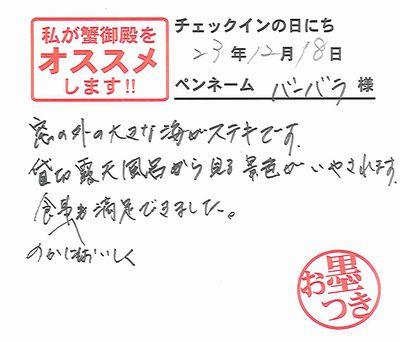 私が蟹御殿を
オススメ
します!!
チェックインの日にち
23年12月18日
ペンネーム バーバラ 様
窓の外の大きな海がステキです。
貸切露天風呂から見る景色がいやされます。
食事も満足できました。
のかにおいしく
お墨つき